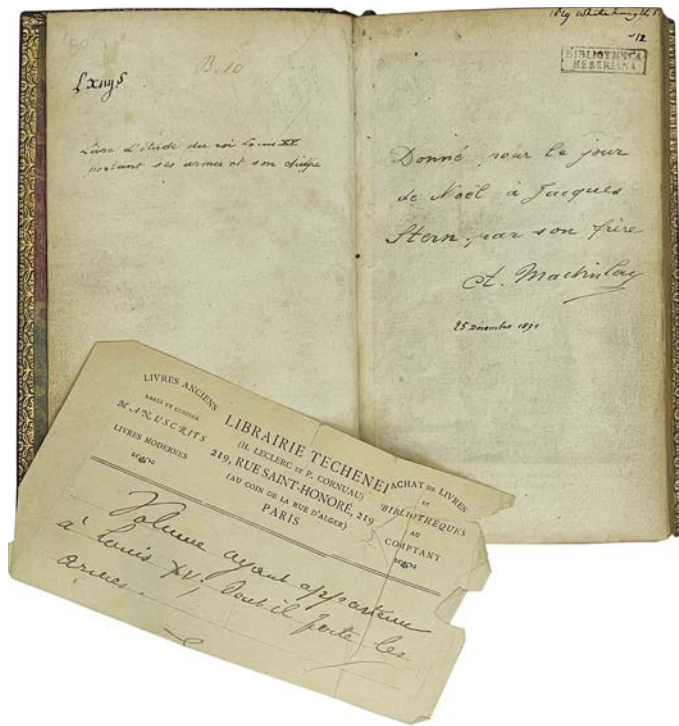 B. 10
Livre d'étude du roi Louis XV.
portant ses armes et son chiffre
12
BIBLIOTHECA
HEBERIANA
Donné pour le jour
de Noël à Jacques
Stern par son frère
25 Décembre 1891
LIVRES ANCIENS
RARES ET CURIEUX
MANUSCRITS
LIVRES MODERNES
LIBRAIRIE TECHENER
(H. LECLERC ET P. CORNUAU)
219, RUE SAINT-HONORÉ, 219
(AU COIN DE LA RUE D'ALGER)
PARIS
ACHAT DE LIVRES
ET
BIBLIOTHÈQUES
AU
COMPTANT
Volume ayant appartenu
à Louis XV, dont il porte les
armes.